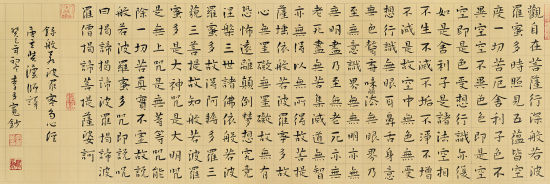 觀自在菩薩行深般若波
羅蜜多時照見五蘊皆空
度一切苦厄舍利子色不
異空空不異色色即是空
空即是色受想行識亦復
如是舍利子是諸法空相
不生不滅不垢不淨不增
不減是故空中無色無受
想行識無眼耳鼻舌身意
無色聲香味觸法無眼界乃
至無意識界無無明亦無
無明盡乃至無老死亦無
老死盡無苦集滅道無智
亦無得以無所得故菩提
薩埵依般若波羅蜜多故
心無罣礙無罣礙故無有
恐怖遠離顛倒夢想究竟
涅槃三世諸佛依般若波
羅蜜多故得阿耨多羅三
藐三菩提故知般若波羅
蜜多是大神咒是大明咒
是無上咒是無等等咒能
除一切苦真實不虛故說
般若波羅蜜多咒即說咒
曰揭諦揭諦波羅揭諦波
羅僧揭諦菩提薩婆訶
錄般若波羅蜜多心經